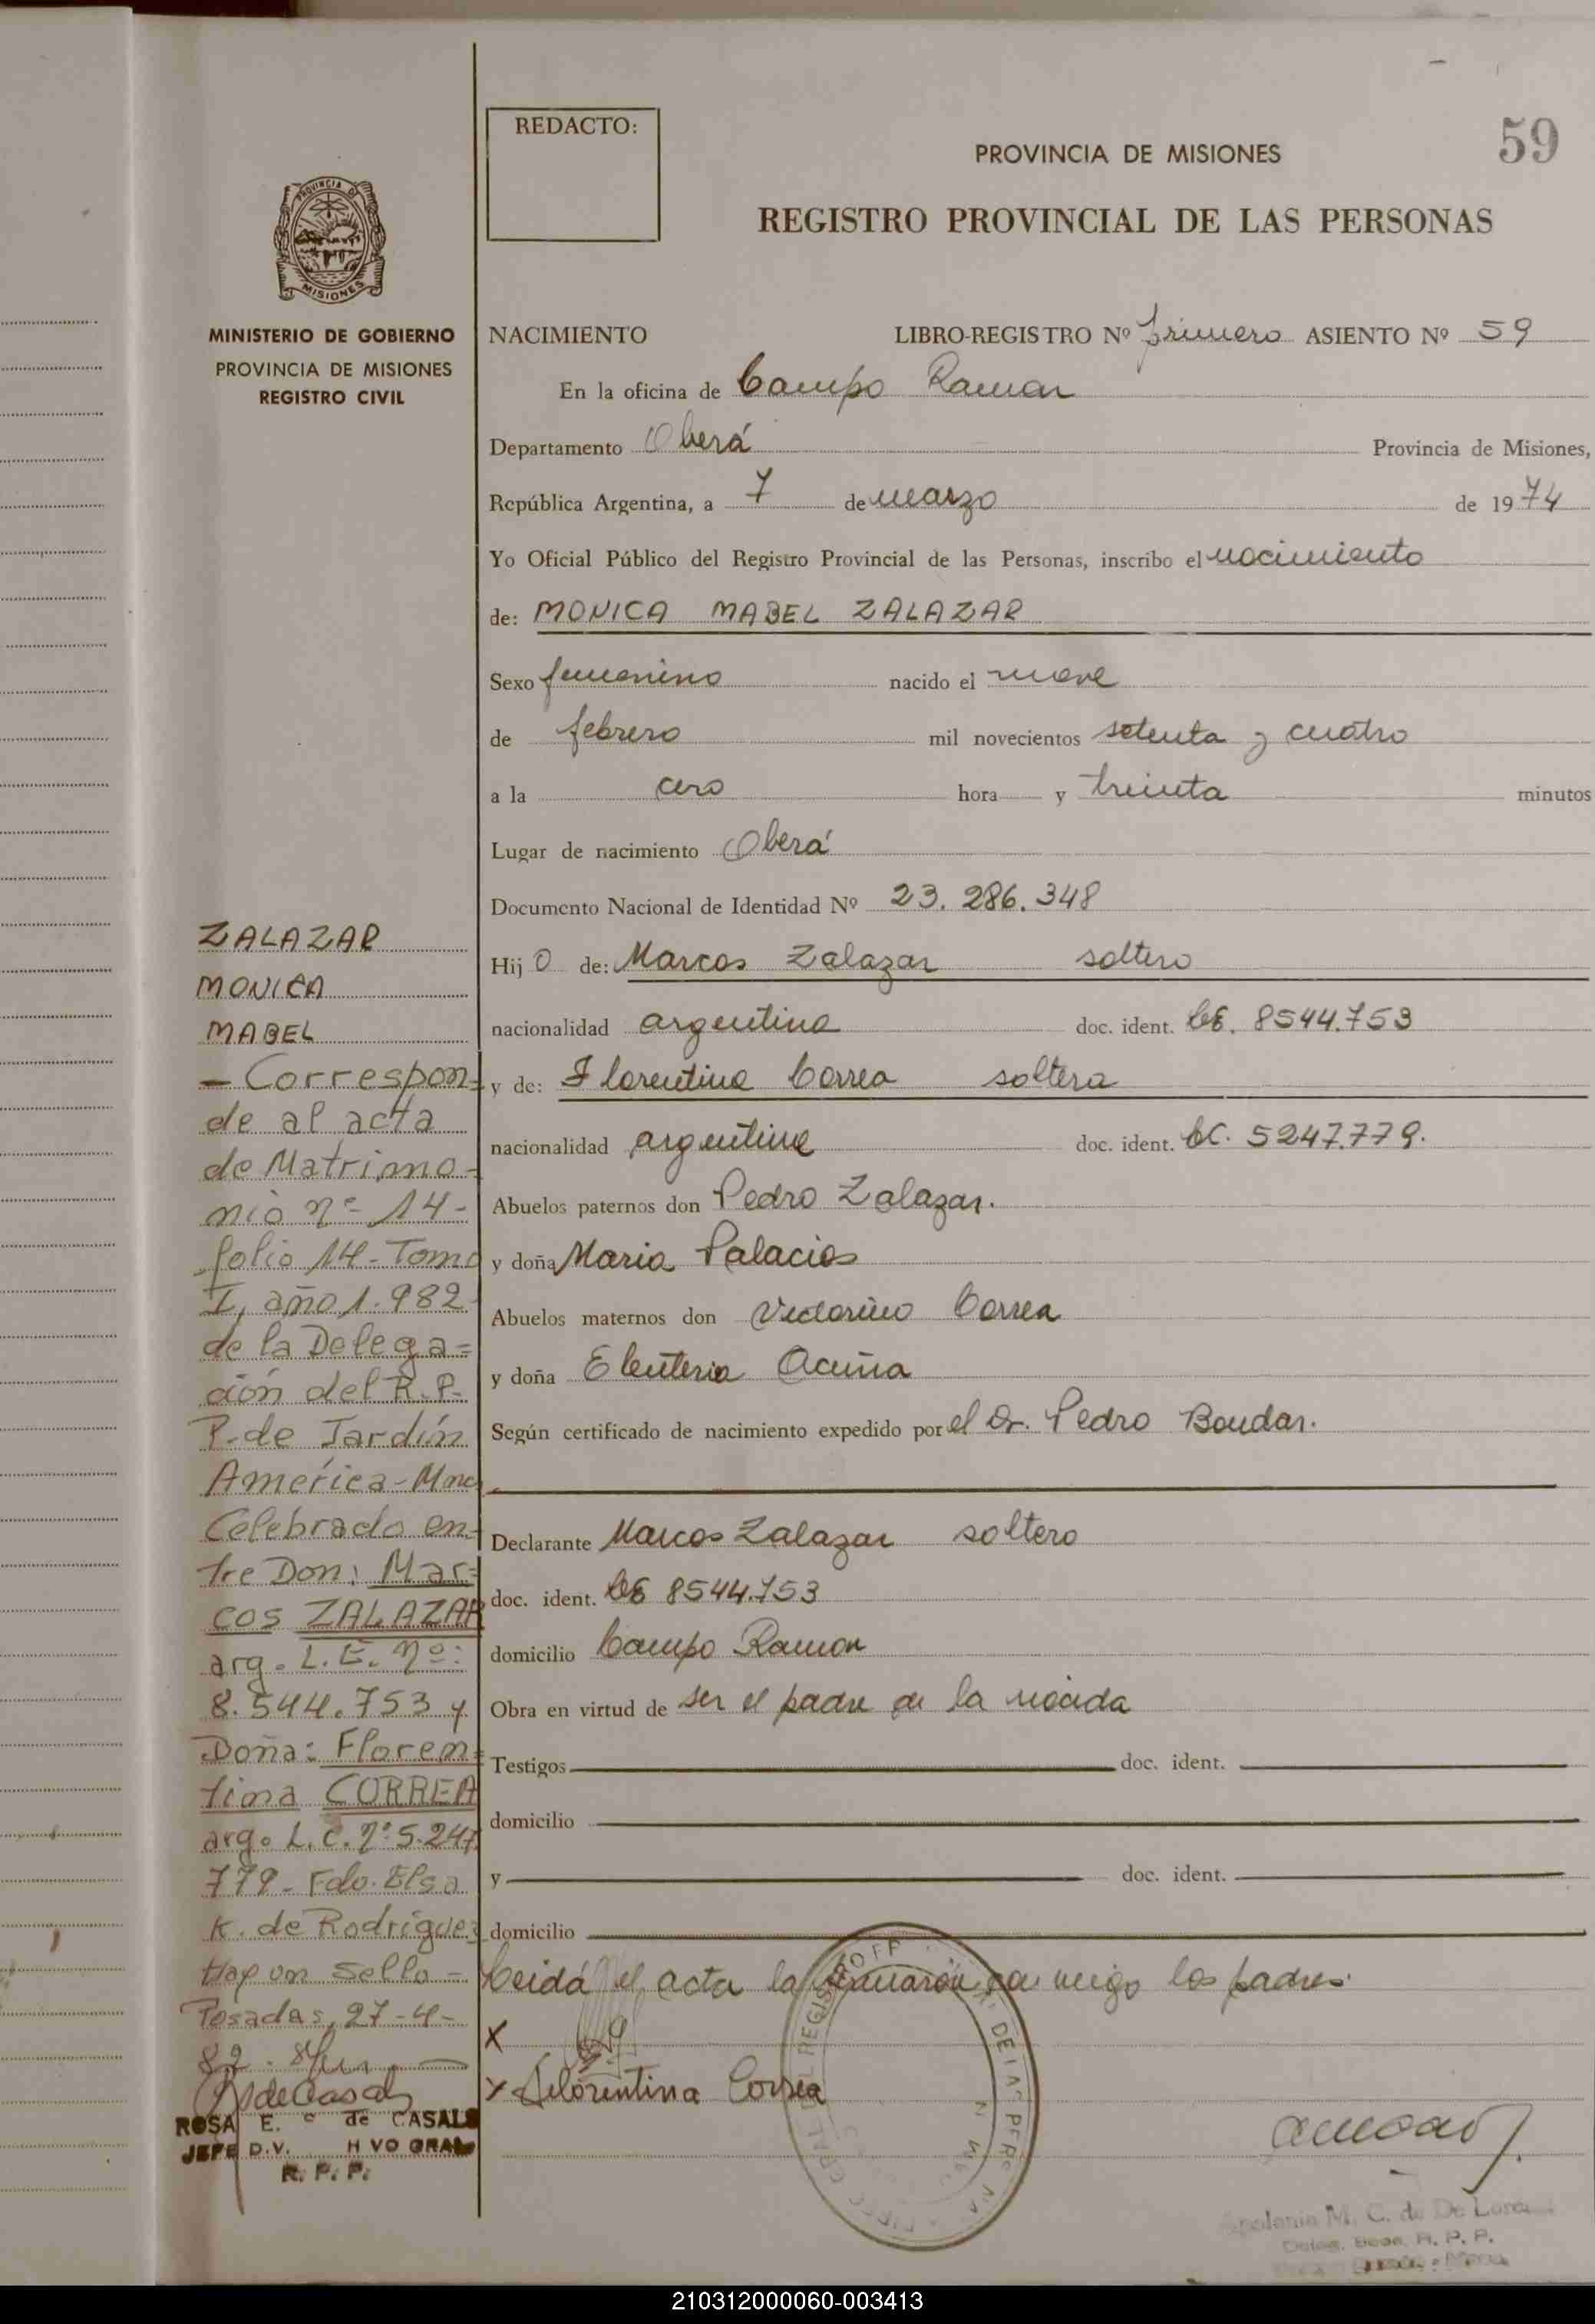 REDACTO:
PROVINCIA DE MISIONES
59
REGISTRO PROVINCIAL DE LAS PERSONAS
PROVINCIA DE
MISIONES
MINISTERIO DE GOBIERNO
PROVINCIA DE MISIONES
REGISTRO CIVIL
NACIMIENTO LIBRO-REGISTRO Nº primero ASIENTO Nº 59
En la oficina de Campo Ramon
Departamento Oberá Provincia de Misiones,
República Argentina, a 7 de marzo de 1974
Yo Oficial Público del Registro Provincial de las Personas, inscribo el nacimiento
de: MONICA MABEL ZALAZAR
Sexo femenino nacido el nueve
de febrero mil novecientos setenta y cuatro
a la cero hora y treinta minutos
Lugar de nacimiento Oberá
Documento Nacional de Identidad Nº 23.286.348
Hij a de: Marcos Zalazar soltero
nacionalidad argentina doc. ident. LE. 8544.753
y de: Florentina Correa soltera
nacionalidad argentina doc. ident. LC. 5247.779.
Abuelos paternos don Pedro Zalazar.
y doña Maria Palacios
Abuelos maternos don Victorino Correa
y doña Eleuteria Acuña
Según certificado de nacimiento expedido por el Dr. Pedro Bondar.
Declarante Marcos Zalazar soltero
doc. ident. LE 8544.753
domicilio Campo Ramon
Obra en virtud de ser el padre de la nacida
Testigos doc. ident.
domicilio
y doc. ident.
domicilio
Leida el acta la firmaron conmigo los padres.
X
X Florentina Correa
ZALAZAR
MONICA
MABEL
- Correspon-
de al acta
de Matrimo-
nio nº 14-
folio 14- Tomo
I, año 1.982-
de la Delega=
ción del R.P.
P. de Jardín
América - Mnes
Celebrado en-
tre Don: Mar=
cos ZALAZAR
arg. L.E. Nº:
8.544.753 y
Doña: Floren=
tina CORREA
arg. L.C. Nº 5.247.
779- Fdo. Elsa
K. de Rodriguez
Hay un sello -
Posadas, 27-4-
82.
ROSA E. C de CASALS
JEFE D.V. H VO GRAL
R. P. P.
M. C. de De Lara
R. P. P.
210312000060-003413